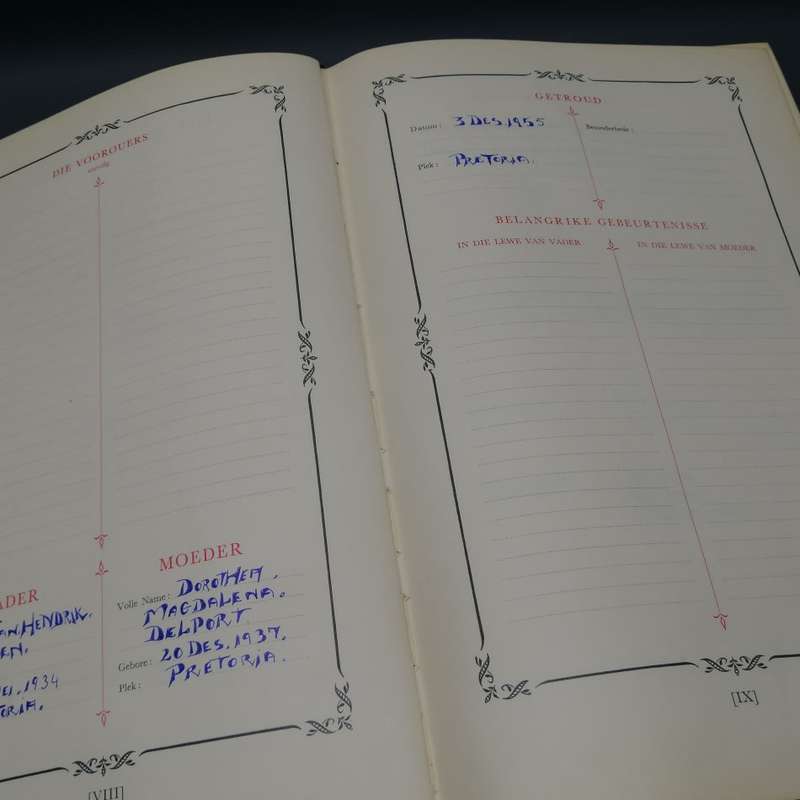 DIE VOOROUERS
vervolg
VADER
JAN HENDRIK.
EN.
EI. 1934
TORIA.
MOEDER
Volle Name: DOROTHEA.
MAGDALENA.
DELPORT
Gebore: 20 DES. 1937.
Plek: PRETORIA.
[VIII]
GETROUD
Datum: 3 DES. 1955
Besonderhede:
Plek: PRETORIA.
BELANGRIKE GEBEURTENISSE
IN DIE LEWE VAN VADER
IN DIE LEWE VAN MOEDER
[IX]